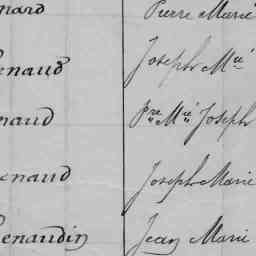 nard Pierre Marie
enaud Joseph Mie
naud Pre Mie Joseph
enaud Joseph Marie
enaudin Jean Marie